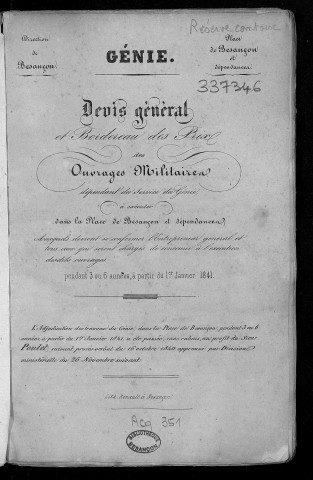 Direction
de
Besançon.
Réserve comtoise
Place
de Besançon
et
dépendances.
GÉNIE.
337346
Devis général
et Bordereau des Prix
des
Ouvrages Militaires
dépendant du Service du Génie
à exécuter
dans la Place de Besançon et dépendances,
Auxquels devront se conformer l'Entrepreneur général et
tous ceux qui seront obligés de concourir à l'exécution
desdits ouvrages
pendant 3 ou 6 années, à partir du 1er Janvier 1841.
L'Adjudication des travaux du Génie, dans la Place de Besançon, pendant 3 ou 6
années, à partir du 1er Janvier 1841, a été passée, sans rabais, au profit du Sieur
Poulet, suivant procès-verbal du 16 octobre 1840 approuvé par Décision
ministérielle du 26 Novembre suivant.
Lith. à Besançon
Acq 351
BIBLIOTHÈQUE
BESANÇON